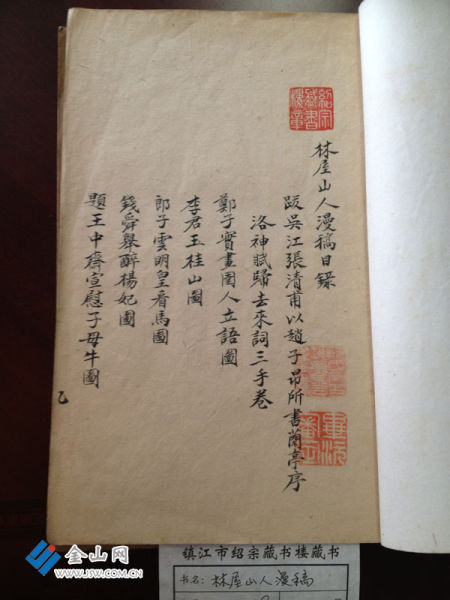 林屋山人漫稿目錄
跋吳江張清甫以趙子昂所書蘭亭序
洛神賦歸去來詞三手卷
鄭子實畫圉人立語圖
李君玉桂山圖
郎子雲明皇看馬圖
錢舜舉醉楊妃圖
題王中齋宣慰子母牛圖
紹宗藏書
鎮江市绍宗藏书楼藏书
书名:林屋山人漫稿
金山网
WWW.JSW.COM.CN